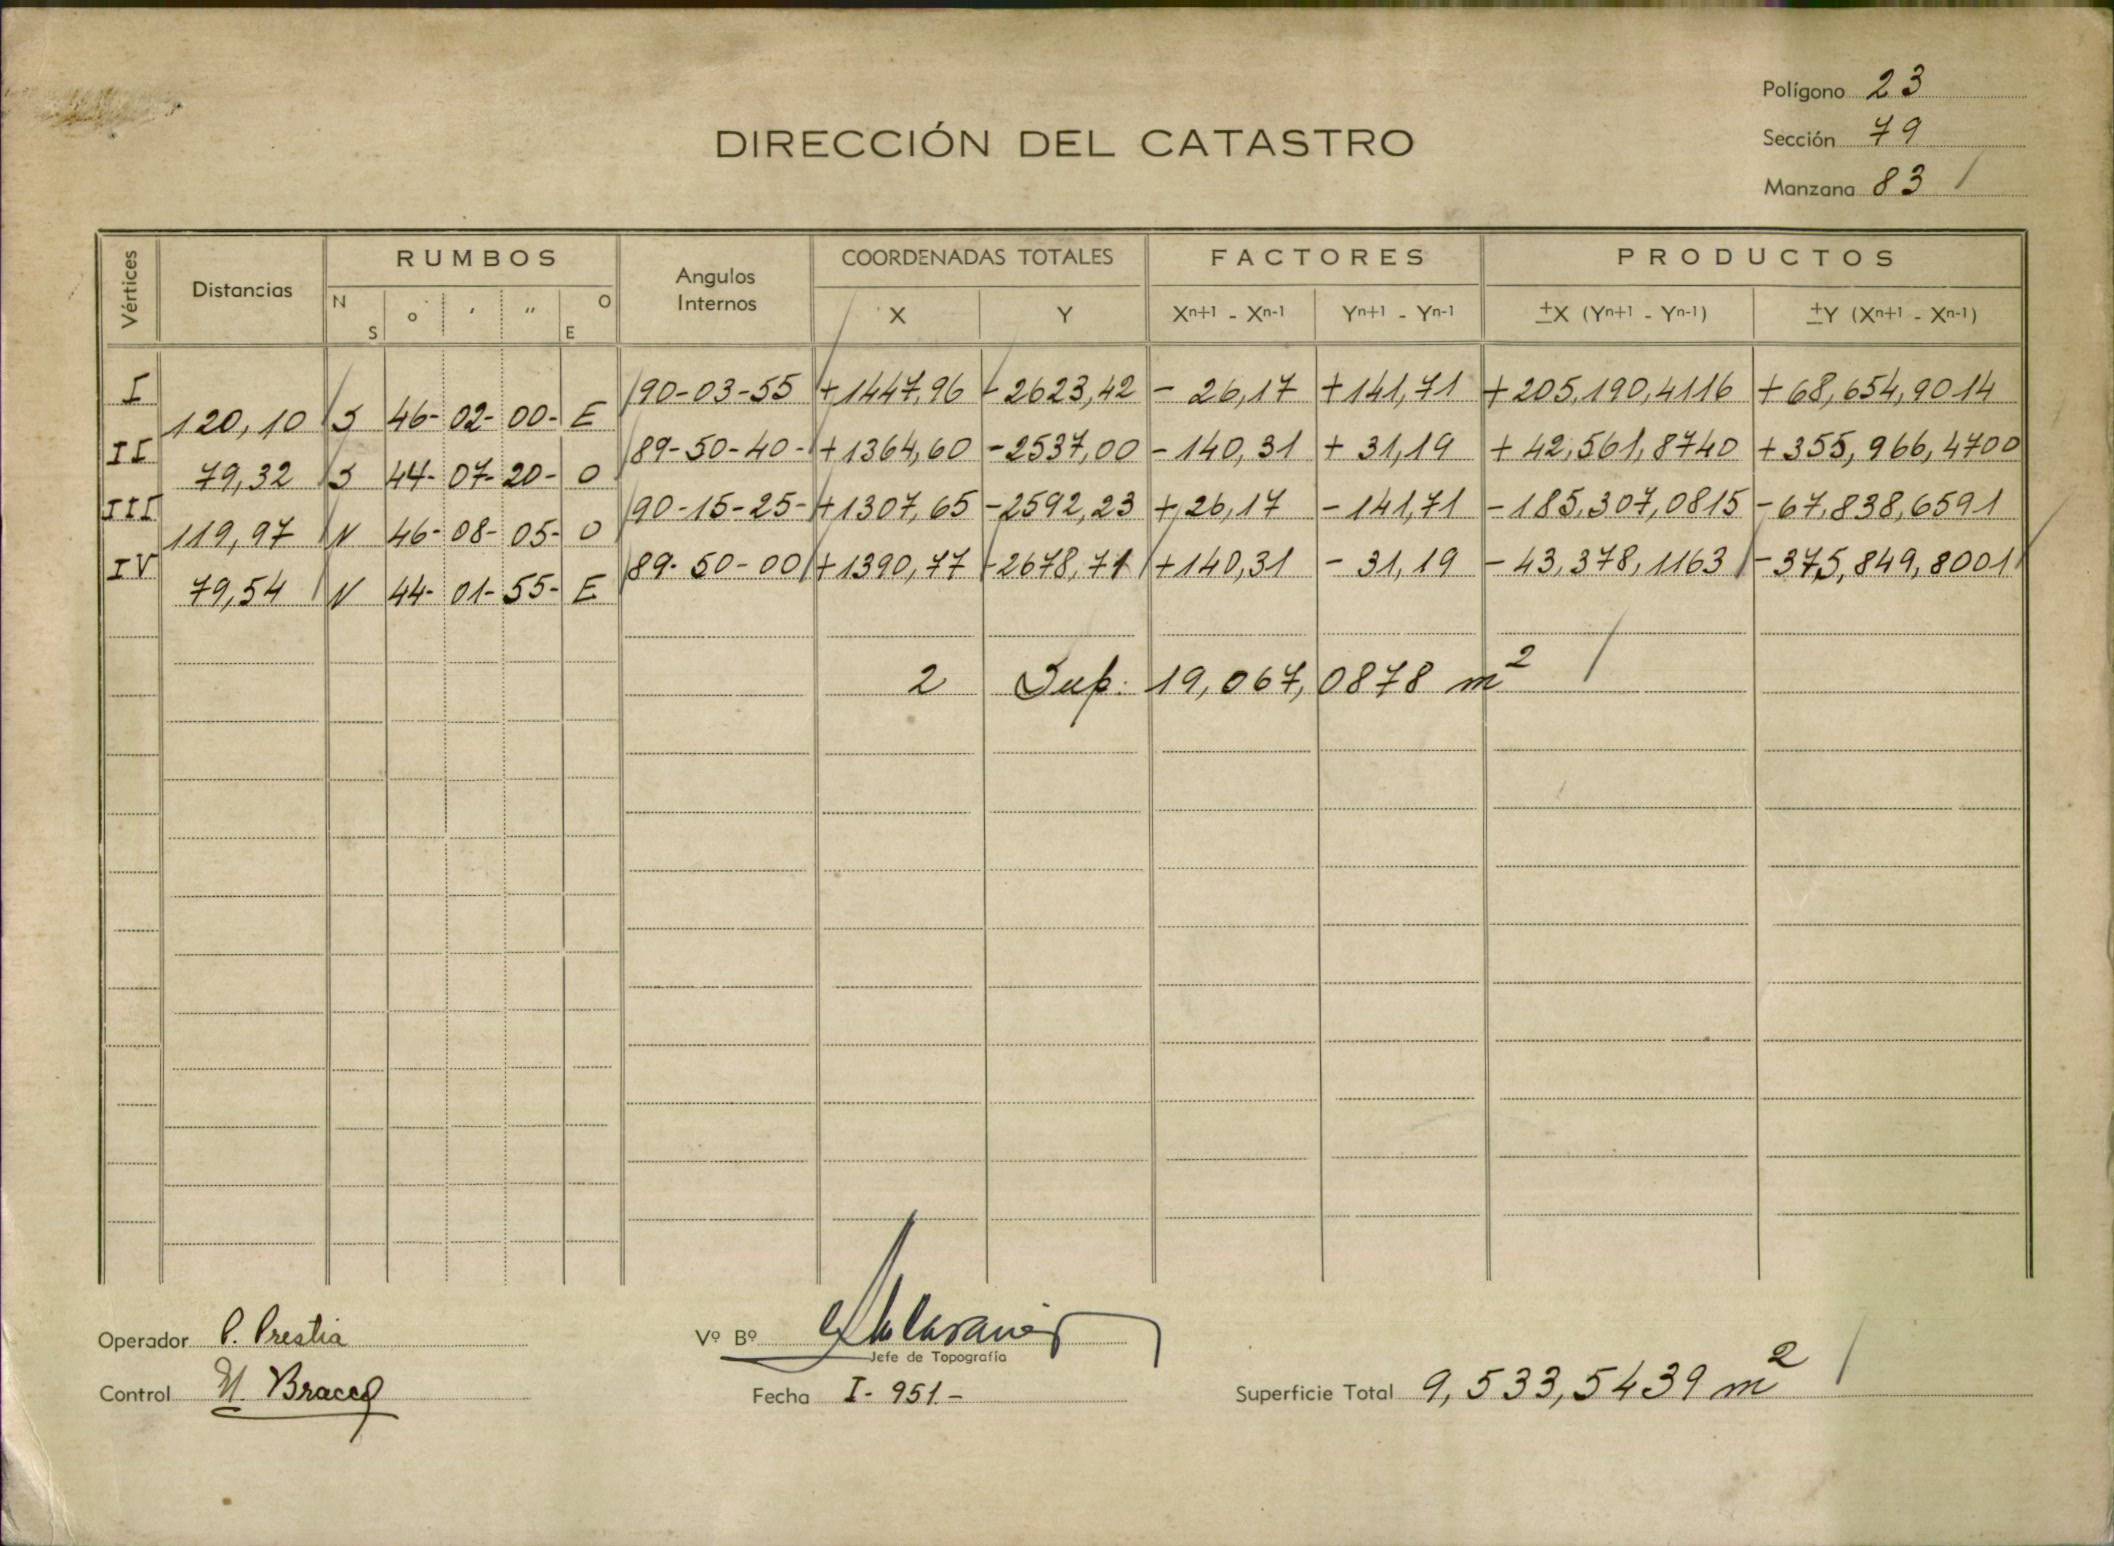 Polígono 23
DIRECCIÓN DEL CATASTRO
Sección 79
Manzana 83 /
Vértices Distancias RUMBOS Angulos Internos COORDENADAS TOTALES FACTORES PRODUCTOS
N S o ' " O E X Y Xn+1 - Xn-1 Yn+1 - Yn-1 ±X (Yn+1 - Yn-1) ±Y (Xn+1 - Xn-1)
I 90-03-55 +1447,96 -2623,42 - 26,17 +141,71 +205.190,4116 +68,654,9014
120,10 S 46- 02- 00- E
II 89-50-40- +1364,60 -2537,00 -140,31 + 31,19 + 42,561,8740 +355,966,4700
79,32 S 44- 07- 20- O
III 90-15-25- +1307,65 -2592,23 +26,17 -141,71 -185.307,0815 -67.838,6591
119,97 N 46- 08- 05- O
IV 89-50-00 +1390,77 -2678,71 +140,31 - 31,19 - 43,378,1163 -375,849,8001
79,54 N 44- 01- 55- E
2 Sup. 19,067,0878 m2 /
Operador P. Prestia
Vº Bº
Jefe de Topografía
Control H. Bracco
Fecha I- 951.-
Superficie Total 9,533,5439 m2 /